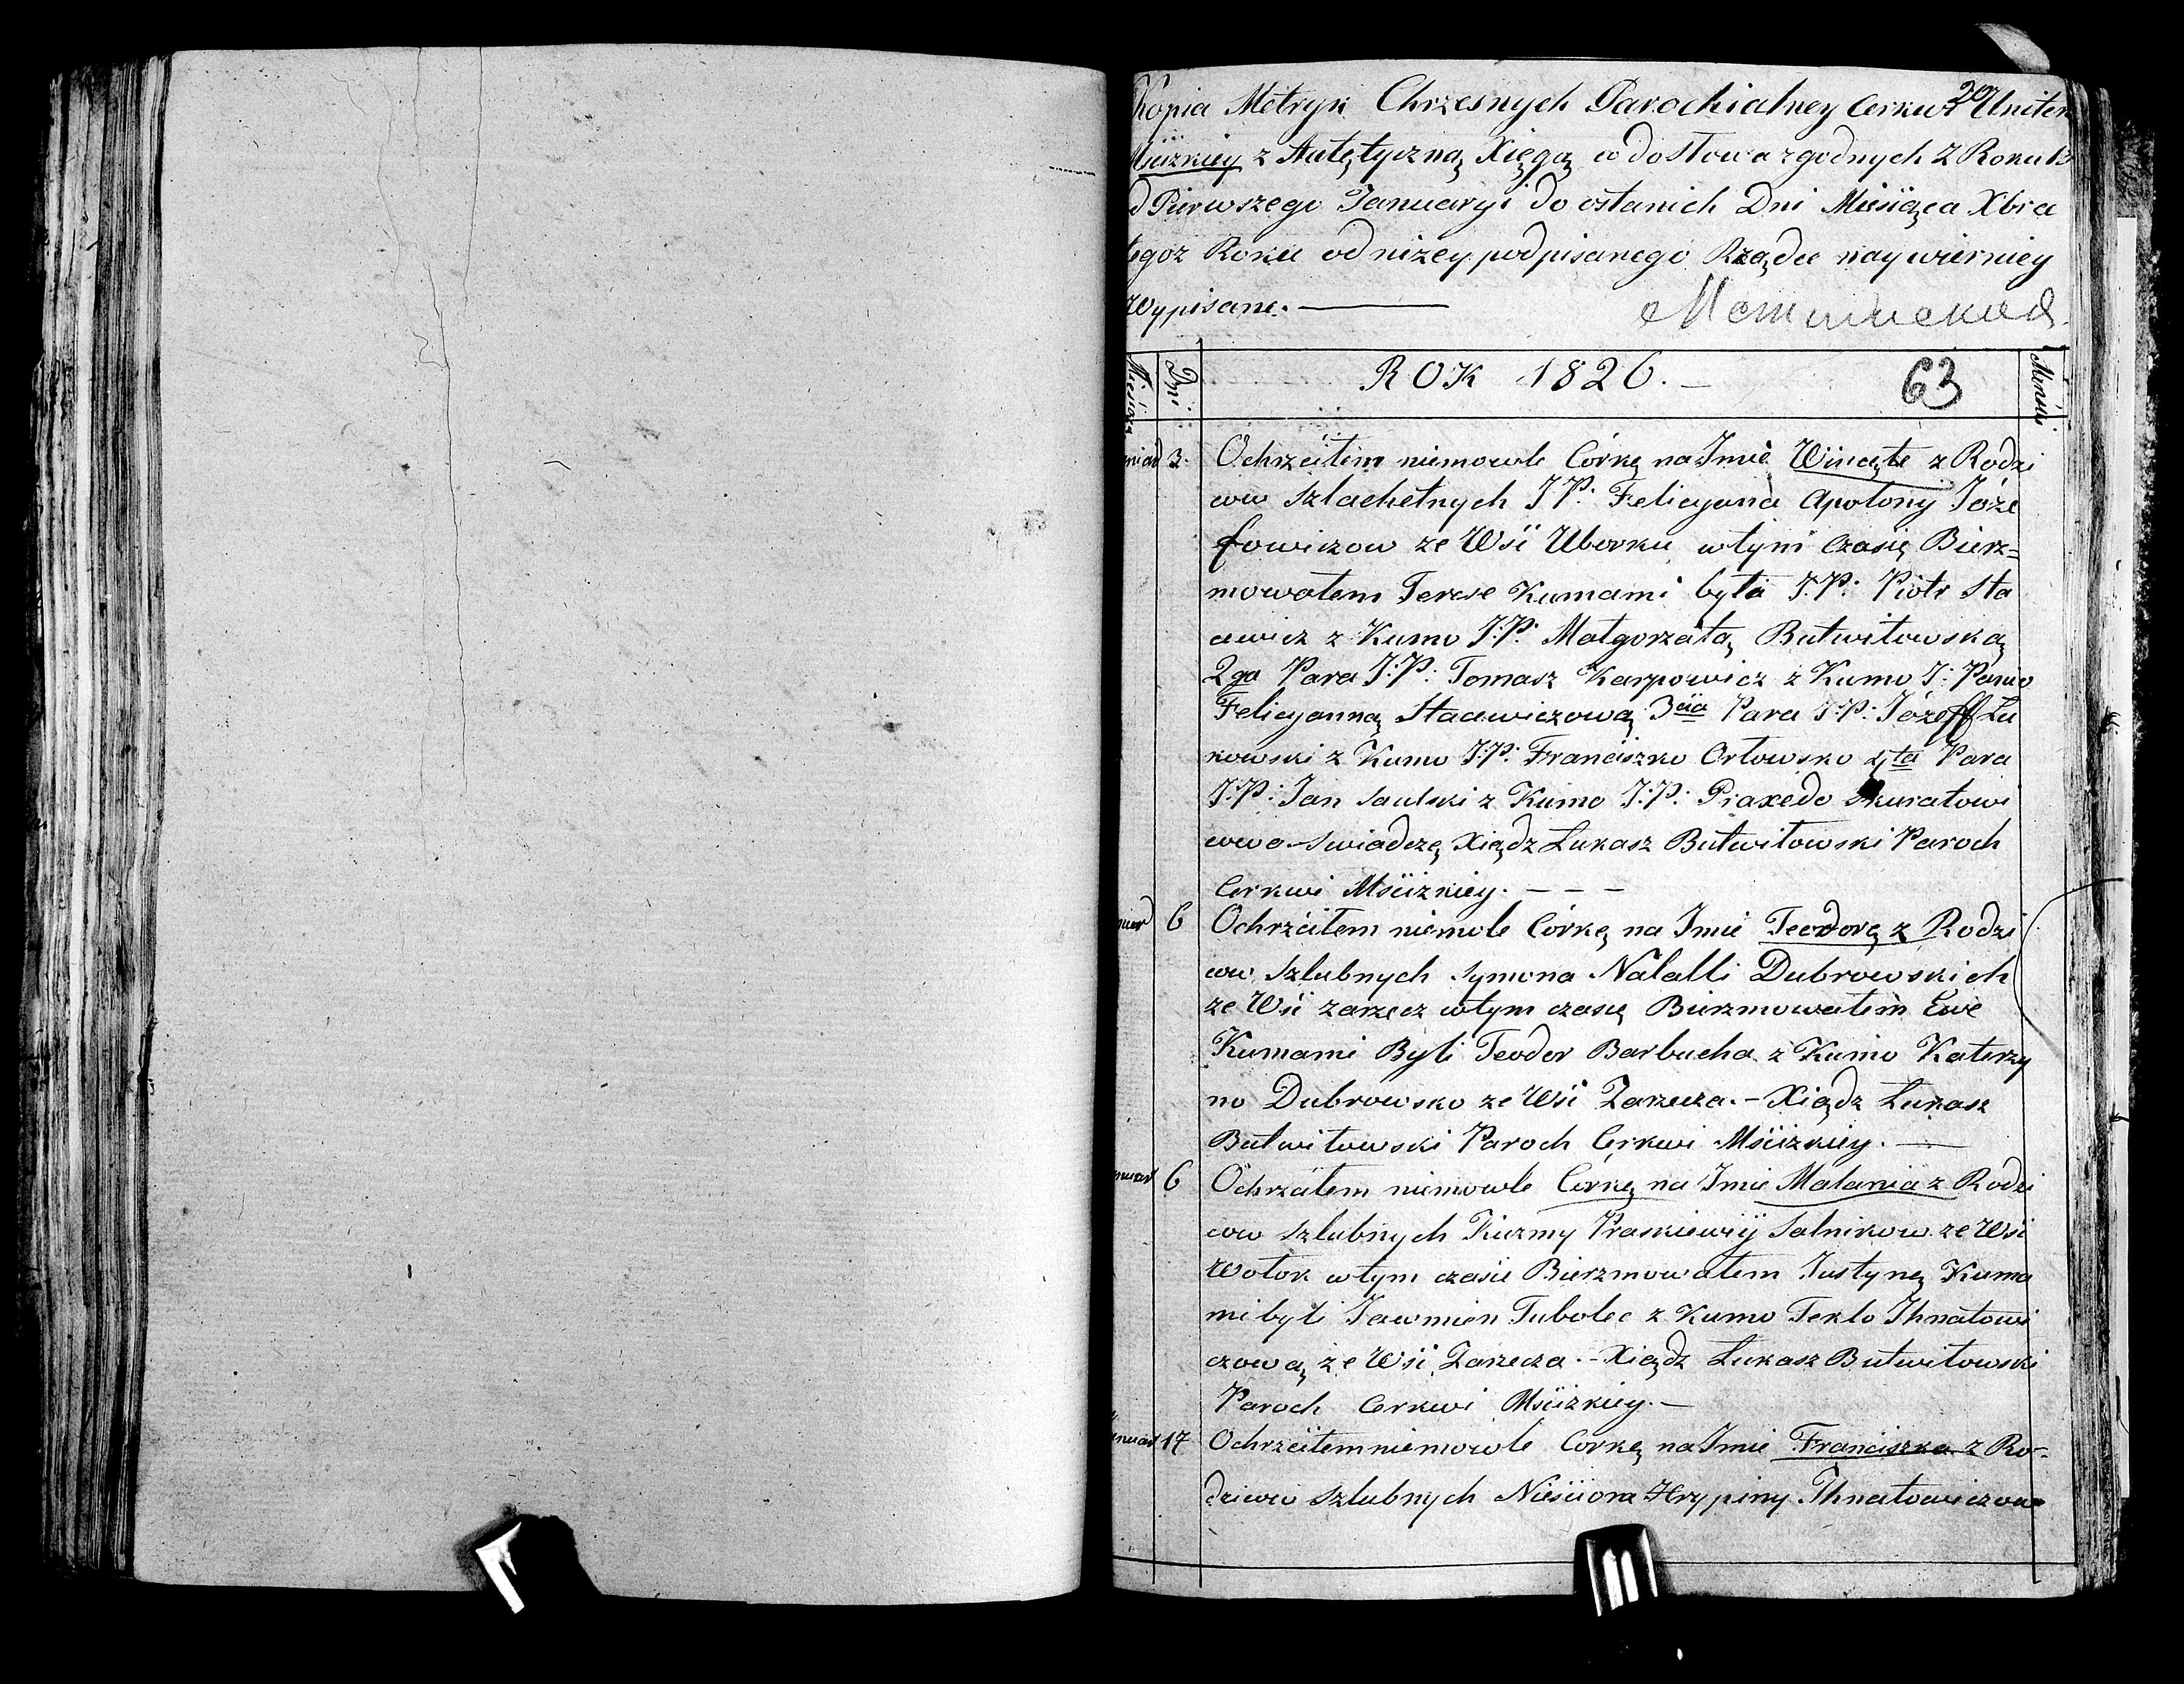 Kopia Metryk Chrzesnych Parochialney Cerkwi Uniten
Mściżkiey z Autętyczną Xięgą co do słowa zgodnych Z Roku 18
d Pierwszego Januaryi do ostanich Dni Miesiąca Xbra
tegoz Roku od nizey podpisanego Rządcu naywierniey
Wypisane.
Мстижская
Miesiąca Dni ROK 1826. 63
3. Ochrzciłem niemowle Córkę na Jmie Wincętę z Rodzi
ow szlachetnych JP. Felicyana Apolony Józe
fowiczow ze Wsi Uborku w tym Czasię Bierz=
mowałem Terese Kumami byla J.P. Piotr Sta
cewicz z Kumo J.P. Małgorzatą Butwiłowską
2ga Para J.P. Tomasz Karpowicz z Kumo J: Panio
Felicyanną Stacewiczową 3cia Para J.P. Józeff Lu
kowski z Kumo J.P. Franciszko Orłowsko 4ta Para
J.P. Jan Saulski z Kumo J.P. Praxedo Skuratowi
czowo. Swiadczę Xiądz Łukasz Butwiłowski Paroch
Cerkwi Mściżkiey. - - -
6 Ochrzciłem niemole Córkę na Jmie Teodorę z Rodzi
ow szlubnych Symona Natalli Dubrowskich
ze Wsi Zarzecz w tym czasię Bierzmowałem Ewe
Kumami Byli Teodor Barbucha z Kumo Katerzy
no Dubrowsko ze Wsi Zarzecza. - Xiądz Łukasz
Butwiłowski Paroch Cerkwi Mściżkiey.
6 Ochrzciłem niemowle Córkę na Jmie Malania z Rodzi
ow szlubnych Kuzmy Praskiewiy Salnikow ze Wsi
Wołok w tym czasie Bierzmowałem Justynę Kuma
mi byli Jawmien Tubolec z Kumo Teklo Jhnatowi
czową ze Wsi Zarzecza. - Xiądz Łukasz Butwiłowski
Paroch Cerkwi Mściżkiey. -
17 Ochrzciłem niemowle Corkę na Jmie Franciszka z Ro-
dziców szlubnych Niesciora Hrypiny Jhnatowiczow